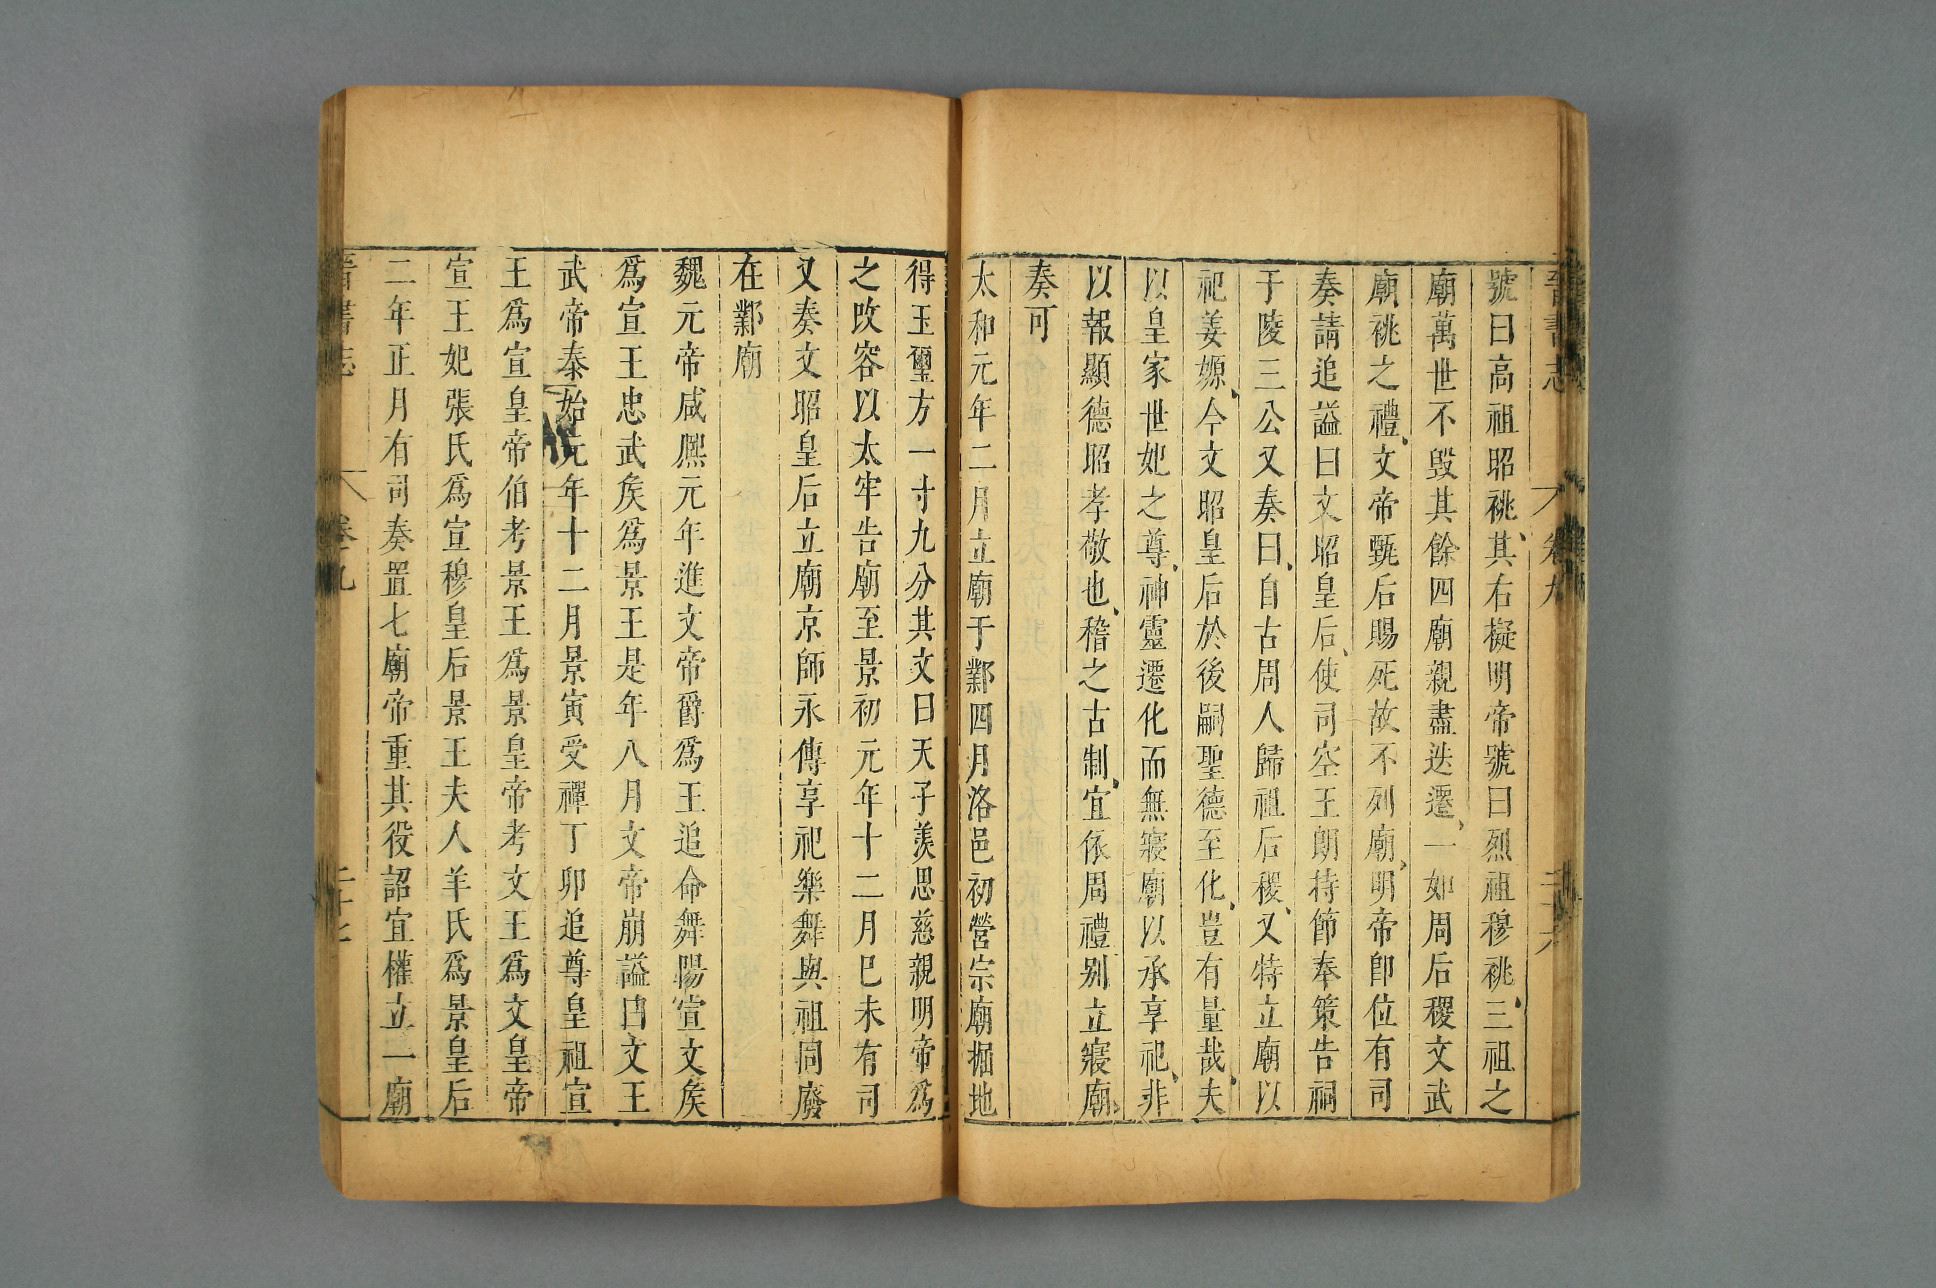 晉書志 卷九 二十六
號曰高祖昭祧其右擬明帝號曰烈祖穆祧三祖之
廟萬世不毀其餘四廟親盡迭遷一如周后稷文武
廟祧之禮文帝甄后賜死故不列廟明帝卽位有司
奏請追謚曰文昭皇后使司空王朗持節奉策告祠
于陵三公又奏曰自古周人歸祖后稷又特立廟以
祀姜嫄今文昭皇后於後嗣聖德至化豈有量哉夫
以皇家世妃之尊神靈遷化而無寢廟以承享祀非
以報顯德昭孝敬也稽之古制宜依周禮别立寢廟
奏可
太和元年二月立廟于鄴四月洛邑初營宗廟掘地
得玉璽方一寸九分其文曰天子羨思慈親明帝爲
之攺容以太牢告廟至景初元年十二月巳未有司
又奏文昭皇后立廟京師永傳享祀樂舞與祖同廢
在鄴廟
魏元帝咸熙元年進文帝爵爲王追命舞陽宣文矦
爲宣王忠武矦爲景王是年八月文帝崩謚曰文王
武帝泰始元年十二月景寅受禪丁卯追尊皇祖宣
王爲宣皇帝伯考景王爲景皇帝考文王爲文皇帝
宣王妃張氏爲宣穆皇后景王夫人羊氏爲景皇后
二年正月有司奏置七廟帝重其役詔宜權立一廟
晉書志 卷十九 二十七